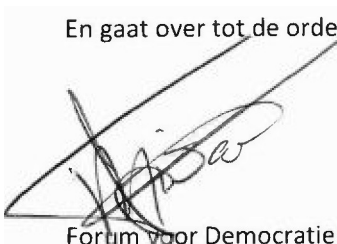 En gaat over tot de orde
Forum voor Democratie